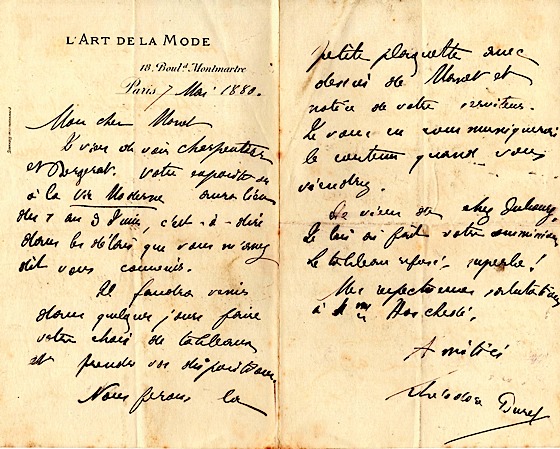 L'ART DE LA MODE
18. Boul.d Montmartre
Paris 7 Mai 1880.
Mon cher Monet
Je viens de voir Charpentier
et Bergerat. Votre exposition
à la Vie Moderne aura lieu
du 7 au Juin, c'est-à-dire
dans les délais que vous m'avez
dit vous convenir.
Il faudra venir
dans quelques jours faire
votre choix de tableaux
et prendre vos dispositions
Nous ferons la
petite plaquette avec
dessin de Monet et
notice de votre serviteur.
Je vous en communiquerai
le contenu quand vous
viendrez.
Je viens de chez Dubourg.
Je lui ai fait votre commission
Le tableau refusé, superbe!
Mes respectueuses salutations
à Mme Hoschedé.
Amitiés
Théodore Duret